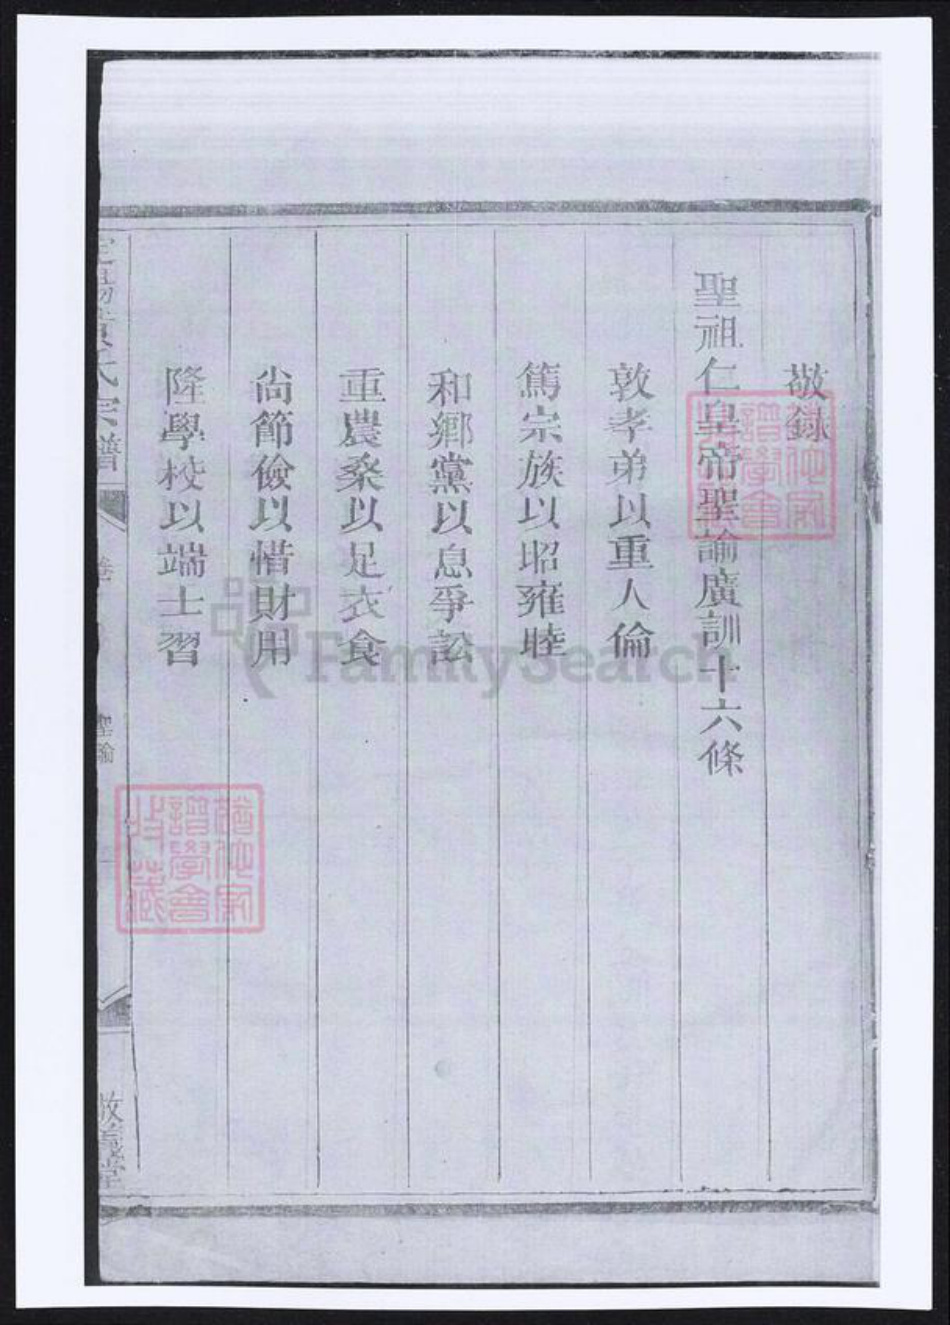 敬録
聖祖仁皇帝聖諭廣訓十六條
敦孝弟以重人倫
篤宗族以昭雍睦
和鄉黨以息爭訟
重農桑以足衣食
尚節儉以惜財用
隆學校以端士習
氏宗譜
卷
聖諭
敬義堂
譜學會
收藏
FamilySearch